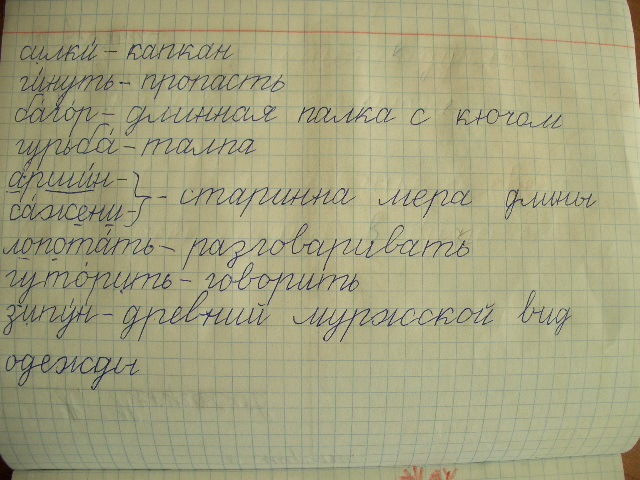 силки́ – капкан
ги́нуть – пропасть
баго́р – длинная палка с ключом
гурьба́ – талпа
арши́н –
са́жени – } – старинна мера длины
лопота́ть – разговаривать
гуто́рить – говорить
зипу́н – древний муржской вид
одежды